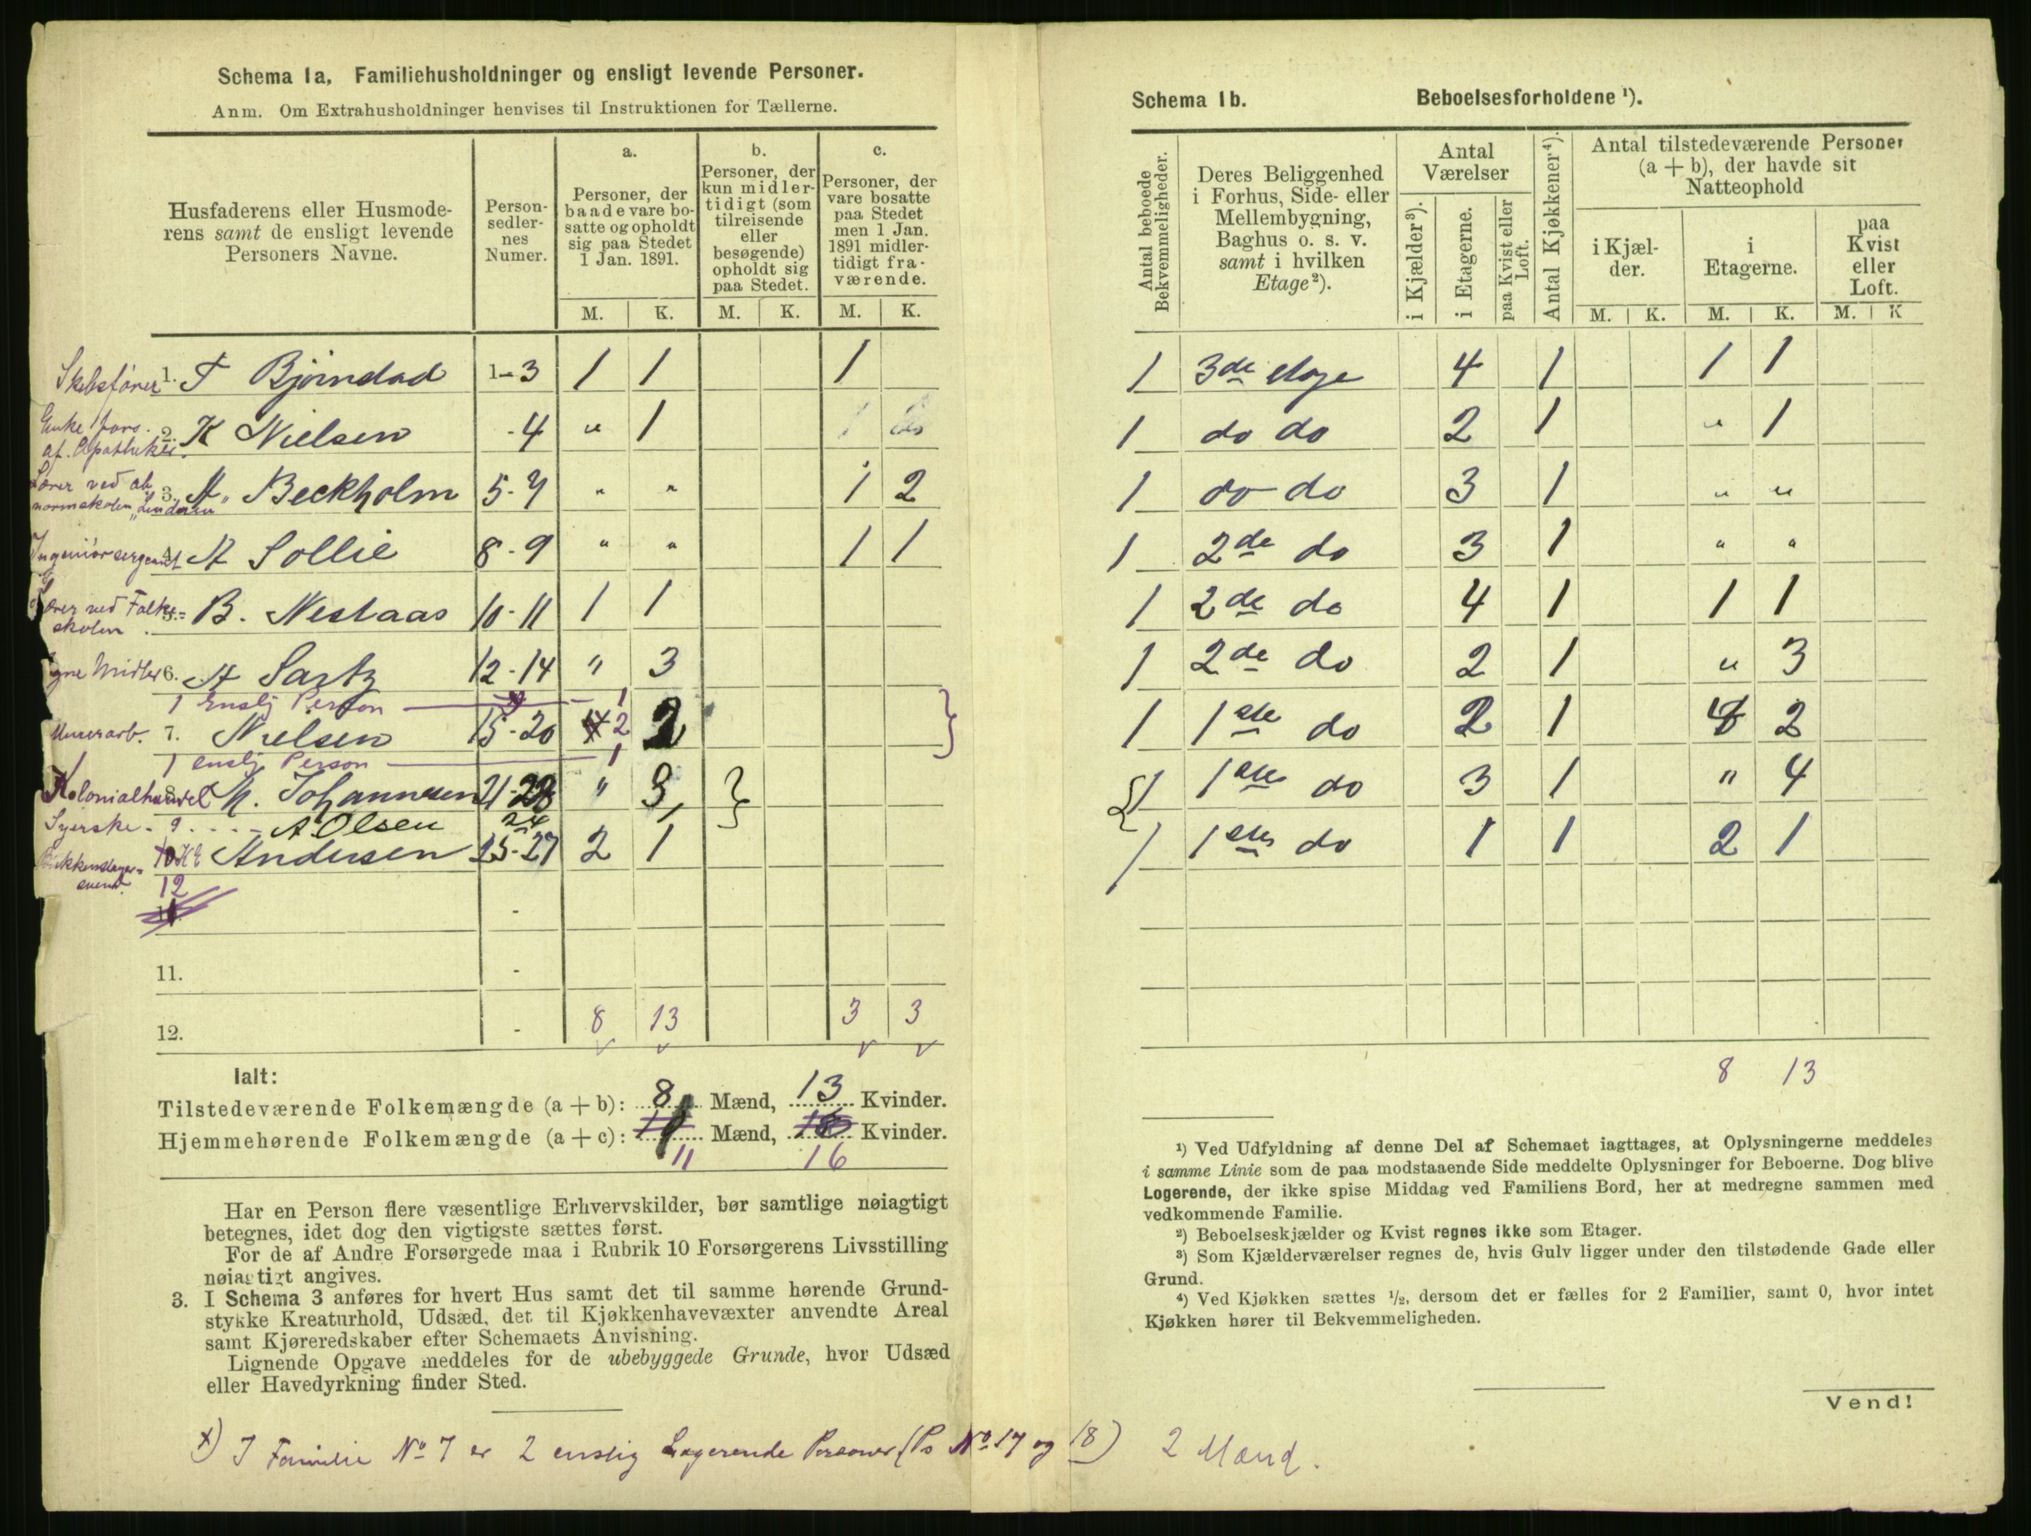 Schema 1a. Familiehusholdninger og ensligt levende Personer.
Anm. Om Extrahusholdninger henvises til Instruktionen for Tællerne.
Husfaderens eller Husmoderens samt de ensligt levende Personers Navne.
Personsedlernes Numer.
a. Personer, der baade vare bosatte og opholdt sig paa Stedet 1 Jan. 1891.
b. Personer, der kun midlertidigt (som tilreisende eller besøgende) opholdt sig paa Stedet.
c. Personer, der vare bosatte paa Stedet men 1 Jan. 1891 midlertidigt fraværende.
M. K. M. K. M. K.
Skibsfører 1. T Bjørndad 1-3 1 1 1
Enke fors. af. Apotheker. 2. K Nielsen -4 " 1
Lærer ved abnormskolen "Linderen" 3. A Beckholm 5-7 " " 1 2
Ingeniørsergeant 4. A Sollie 8-9 " " 1 1
Lærer ved Folkeskolen 5. B. Nestaas 10-11 1 1
Egne Midler 6. A Sartz 12-14 " 3
1 Enslig Person 1
Murerarb. 7. Nielsen 15-20 2 2
1 enslig Person 1
Kolonialhandel 8. M. Johannesen 21-23 " 3
Syerske - 9 A Olsen 24
Blikkenslagersvend. 10 Andersen 25-27 2 1
12
11. -
12. - 8 13 3 3
Ialt:
Tilstedeværende Folkemængde (a + b): 8 Mænd, 13 Kvinder.
Hjemmehørende Folkemængde (a + c): 11 Mænd, 16 Kvinder.
Har en Person flere væsentlige Erhvervskilder, bør samtlige nøiagtigt
betegnes, idet dog den vigtigste sættes først.
For de af Andre Forsørgede maa i Rubrik 10 Forsørgerens Livsstilling
nøiagtigt angives.
3. I Schema 3 anføres for hvert Hus samt det til samme hørende Grund-
stykke Kreaturhold, Udsæd, det til Kjøkkenhavevæxter anvendte Areal
samt Kjøreredskaber efter Schemaets Anvisning.
Lignende Opgave meddeles for de ubebyggede Grunde, hvor Udsæd
eller Havedyrkning finder Sted.
x) I Familie No 7 er 2 enslig Logerende Personer (Ps No 17 og 18) 2 Mænd.
Schema 1b. Beboelsesforholdene ¹).
Antal beboede Bekvemmeligheder.
Deres Beliggenhed i Forhus, Side- eller Mellembygning, Baghus o. s. v. samt i hvilken Etage ²).
Antal Værelser
i Kjælder ³).
i Etagerne.
paa Kvist eller Loft.
Antal Kjøkkener ⁴).
Antal tilstedeværende Personer (a + b), der havde sit Natteophold
i Kjælder.
i Etagerne.
paa Kvist eller Loft.
M. K. M. K. M. K
1 3de etage 4 1 1 1
1 do do 2 1 " 1
1 do do 3 1 " "
1 2de do 3 1 " "
1 2de do 4 1 1 1
1 2de do 2 1 " 3
1 1ste do 2 1 4 2
1 1ste do 3 1 " 4
1 1ste do 1 1 2 1
8 13
¹) Ved Udfyldning af denne Del af Schemaet iagttages, at Oplysningerne meddeles
i samme Linie som de paa modstaaende Side meddelte Oplysninger for Beboerne. Dog blive
Logerende, der ikke spise Middag ved Familiens Bord, her at medregne sammen med
vedkommende Familie.
²) Beboelseskjælder og Kvist regnes ikke som Etager.
³) Som Kjælderværelser regnes de, hvis Gulv ligger under den tilstødende Gade eller
Grund.
⁴) Ved Kjøkken sættes ¹/₂, dersom det er fælles for 2 Familier, samt 0, hvor intet
Kjøkken hører til Bekvemmeligheden.
Vend!